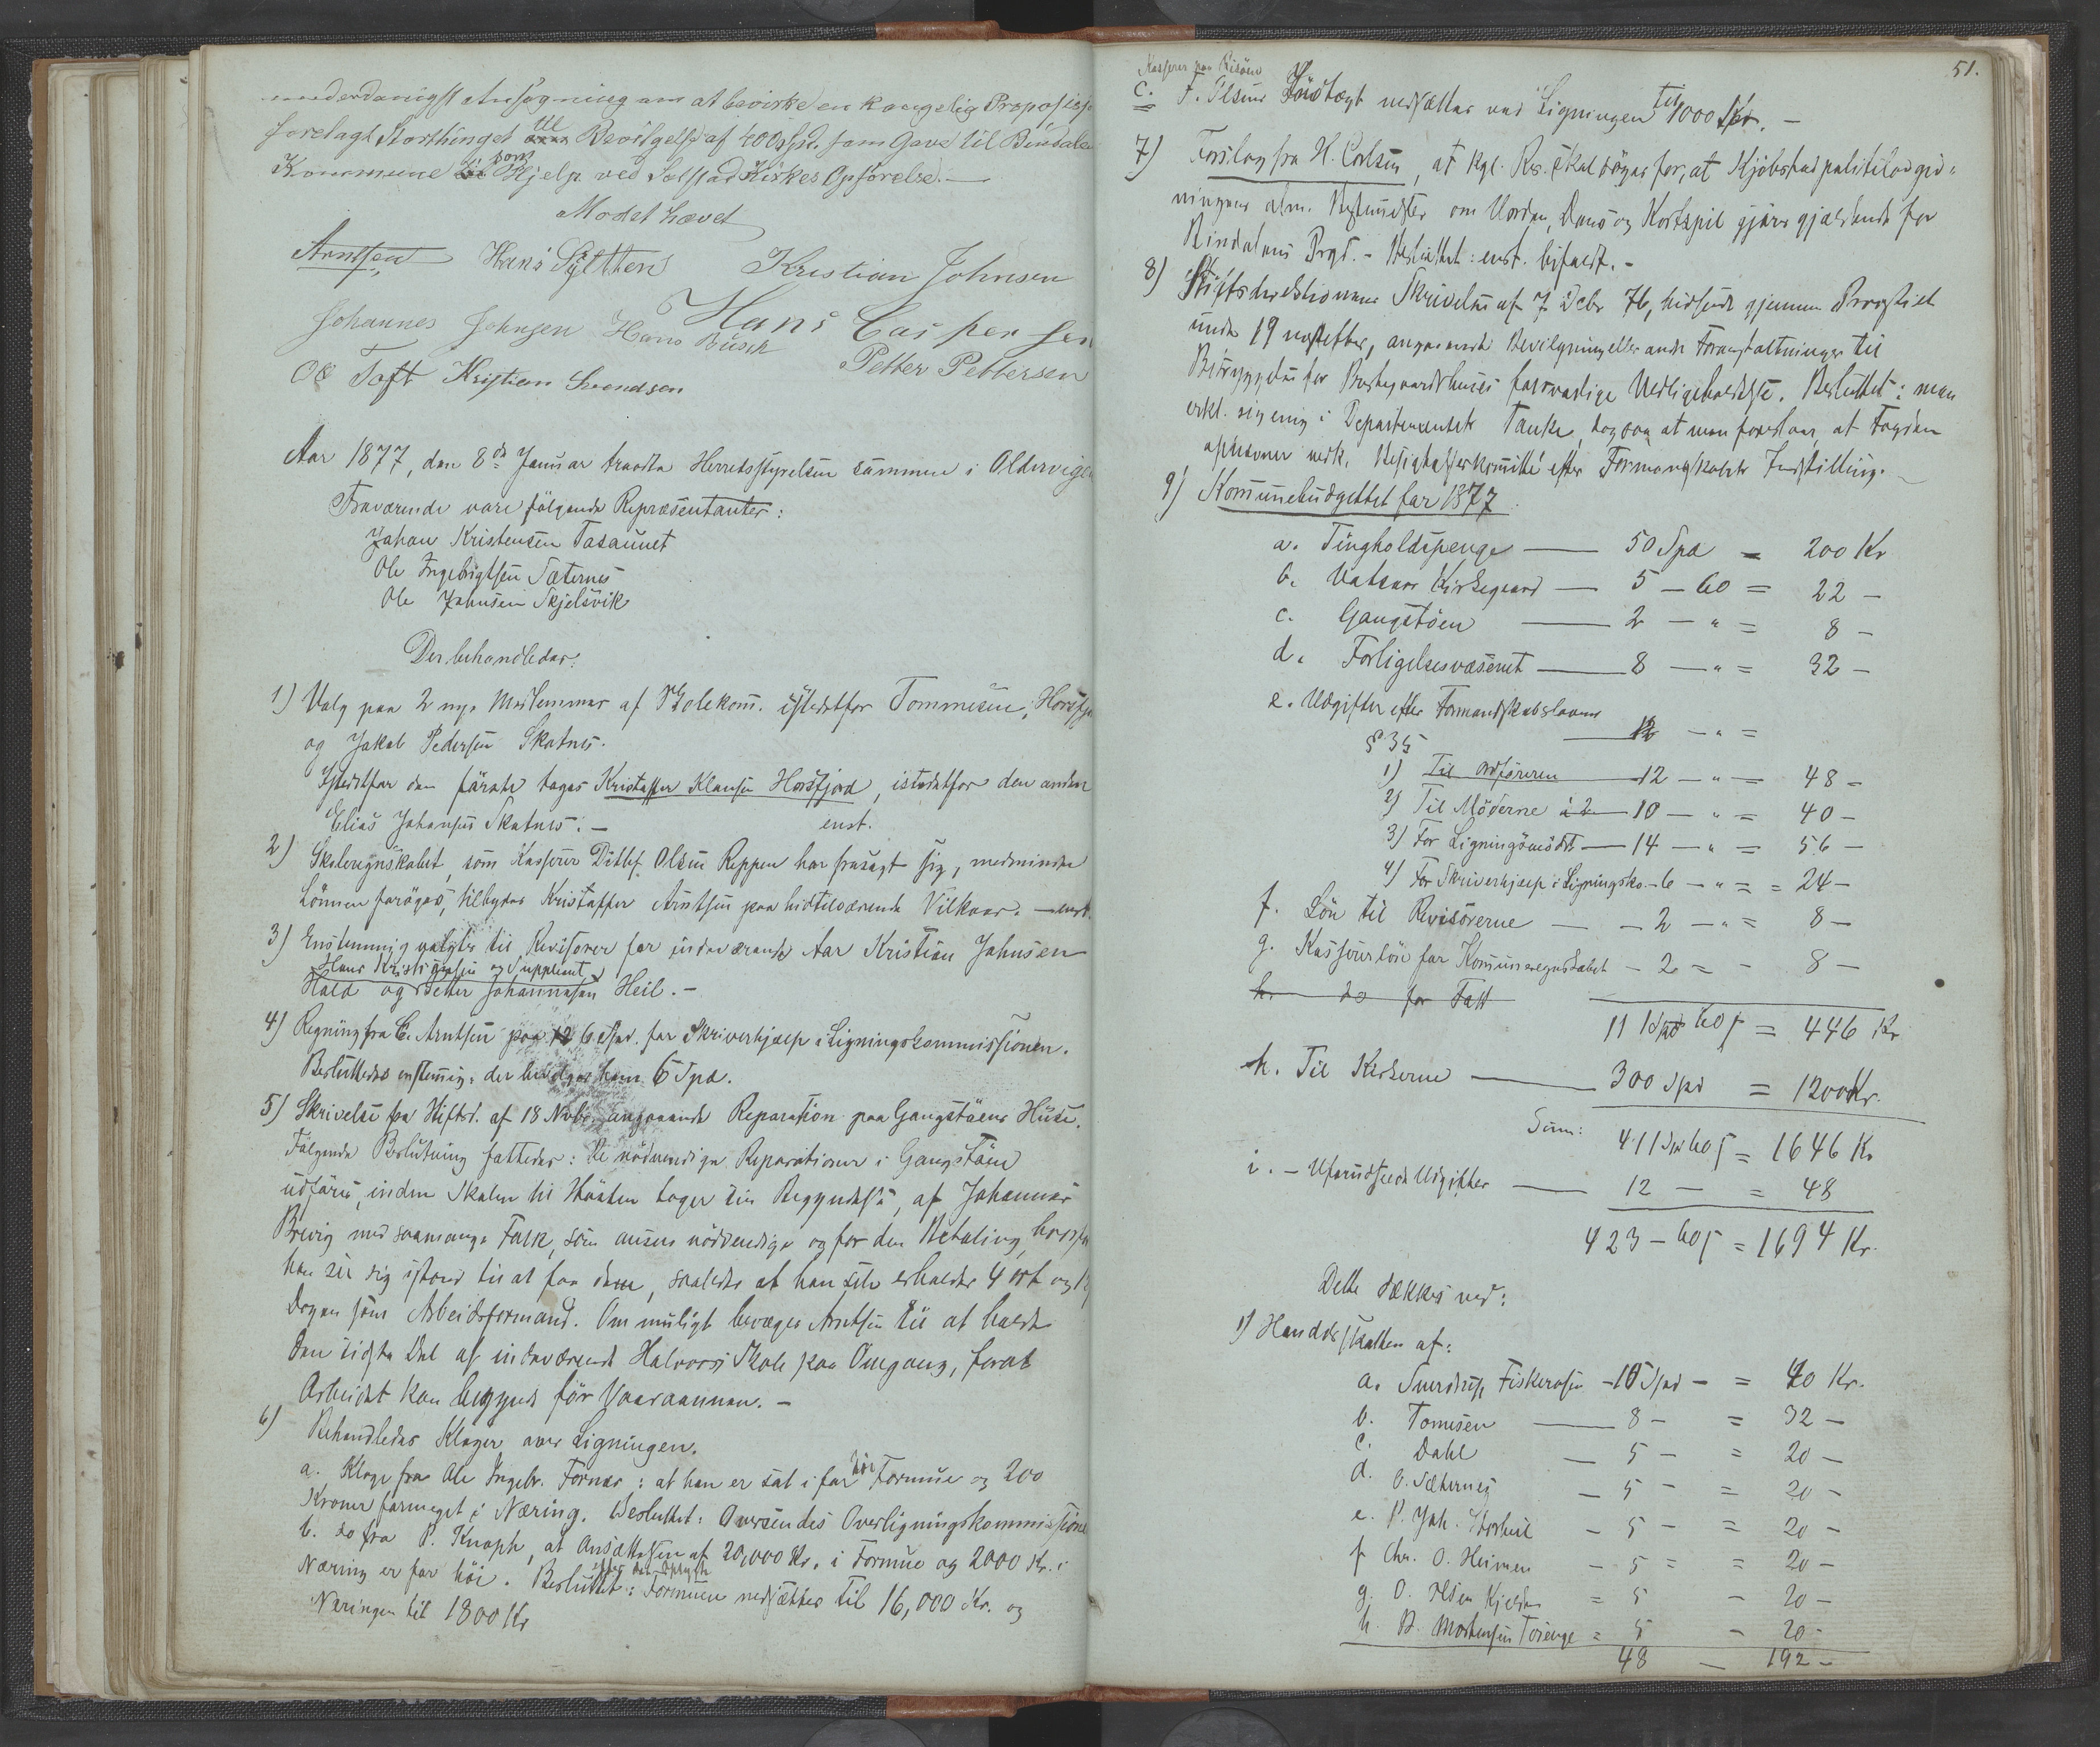 underdanigst Ansøgning om at bevirke en kongelig Proposition
forelagt Storthinget til Bevilgelse af 400 Spd. som Gave til Bindalens
Kommune som Hjelp ved Solstad Kirkes Opførelse. —
Mødet hævet
Arntsen Hans Sylthen Kristian Johnsen
Johannes Johnsen Hans Busch Hans Caspersen
Ole Toft Kristian Svendsen Petter Pettersen
Aar 1877, den 8de Januar traadte Herredsstyrelsen sammen i Oldervigen
Fraværende vare følgende Repræsentanter:
Johan Kristensen Tasaunet
Ole Ingebrigtsen Sæternes
Ole Johnsen Skjelsvik
Der behandledes:
1) Valg paa 2 nye Medlemmer af Skolekom. istedetfor Tommesen, Horsfj
og Jakob Pedersen Skotnes.
Istedetfor den første toges Kristoffer Klausen Horsfjord, istedetfor den anden
Elias Johansen Skotnes. — enst.
2) Skoleregnskabet, som Kasserer Ditlef Olsen Reppen har frasagt sig, medmindre
Lønnen forøges, tilbydes Kristoffer Arntsen paa hidtilværende Vilkaar. — enst.
3) Enstemmig valgtes til Revisorer for indeværende Aar Kristian Johnsen
Hans Kristiansen og Supplient
Hald og Petter Johannesen Heil. —
4) Regning fra C. Arntsen paa 12 6 Spd. for Skriverhjælp i Ligningskommissionen.
Besluttedes enstemmig: der bevilges ham 6 Spd.
5) Skrivelse fra Stiftsd. af 18 Novbr. angaaende Reparation paa Gangstøens Huse.
Følgende Beslutning fattedes: De nødvendige Reparationer i Gangstøen
udføres, inden Skolen til Høsten tager sin Begyndelse, af Johannes
Brevig med saamange Folk, som ansees nødvendige og for den Betaling, hvorfor
han ser sig istand til at faa dem, saaledes at han selv erholder 4 ort og 12
Dagen som Arbeidsformand. Om muligt bevæges Arntsen til at holde
den sidste Del af indeværende Halvaars Skole paa Omgang, forat
Arbeidet kan begyndes før Vaaraannen. —
6) Behandledes Klager over Ligningen.
a. Klage fra Ole Ingebr. Fornæs: at han er sat i for høi Formue og 200
Kroner formeget i Næring. Besluttet: Oversendes Overligningskommissionen
b. do fra P. Knoph, at Ansættelsen af 20,000 Kr. i Formue og 2000 Kr. i
Næring er for høi. Besluttet: Formuen nedsættes til 16,000 Kr. og
Næringen til 1800 Kr
51.
Kasserer paa Risøen
c. F. Olsens Indtægt nedsættes ved Ligningen til 1000 Kr. —
7) Forslag fra H. Carlsen, at kgl. Res. skal søges for, at Kjøbstadpolitilovgiv-
ningens alm. Bestemmelser om Uorden, Dans og Kortspil gjøres gjældende for
Bindalens Prgd. — Besluttet: enst. bifaldt. —
8) Stiftsdirektionens Skrivelse af 7 Decbr 76, hidsendt gjennem Provstiet
under 19 næstefter, angaaende Bevilgning eller andre Foranstaltninger til
Betryggelse for Prestegaardshuses forsvarlige Vedligeholdelse. Besluttet: man
erkl. sig enig i Departementets Tanke, dog saa, at man foreslaar, at Fogden
opnævner vedk. Besigtelseskomité efter Formandskabets Indstilling. —
9) Kommunebudgettet for 1877.
a. Tingholdspenge — 50 Spd = 200 Kr
b. Vatsaas Kirkegaard — 5 — 60 = 22 —
c. Gangstøen — 2 — " = 8 —
d. Forligelsesvæsenet — 8 — " = 32 —
e. Udgifter efter Formandskabslovens
§ 35 — 12 — " =
1) Til Ordføreren — 12 — " = 48 —
2) Til Møderne i 2 — 10 — " = 40 —
3) For Ligningsmødet — 14 — " = 56 —
4) For Skriverhjælp i Ligningsko. — 6 — " = 24 —
f. Løn til Revisorerne — 2 — " = 8 —
g. Kassererløn for Kommuneregnskabet — 2 = — 8 —
h. do for Fatt
111 Spd 60 s = 446 Kr
h. Til Kirkerne — 300 Spd = 1200 Kr.
Sum: 411 Spd 60 s = 1646 Kr
i. — Uforudseede Udgifter — 12 — = 48
423 — 60 s = 1694 Kr.
Dette dækkes ved:
1) Handelsskatten af:
a. Sverdrup, Fiskerosen — 10 Spd — = 40 Kr.
b. Tomesen — 8 — = 32 —
c. Dahl — 5 — = 20 —
d. O. Sæternes — 5 — = 20 —
e. P. Joh. Storheil — 5 — = 20 —
f. Chr. O. Heimen — 5 = = 20 —
g. O. Olsen Kjelden = 5 — 20 —
h. B. Mortensen Torenge = 5 — 20 —
48 — 192 —